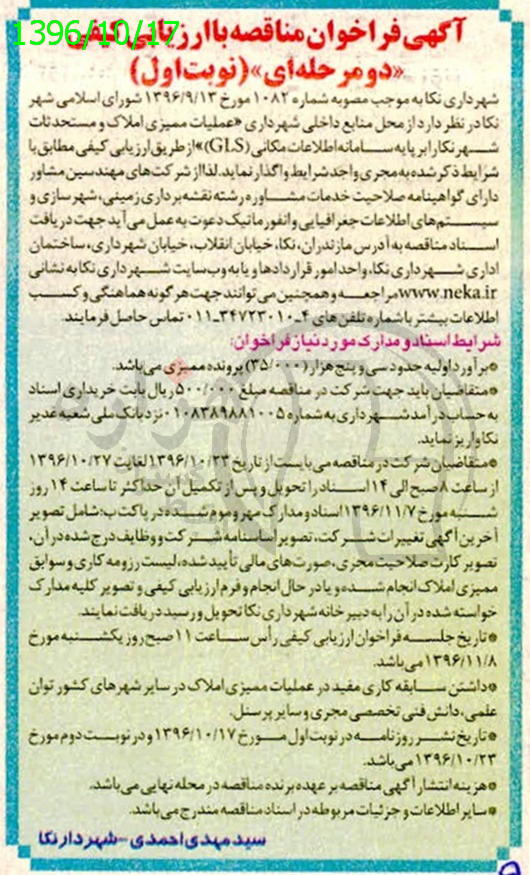 1396/10/17
آگهی فراخوان مناقصه با ارزیابی کیفی
«دو مرحله‌ای» (نوبت اول)
شهرداری نکا به موجب مصوبه شماره ۱۰۸۲ مورخ ۱۳۹۶/۹/۱۳ شورای اسلامی شهر
نکا در نظر دارد از محل منابع داخلی شهرداری «عملیات ممیزی املاک و مستحدثات
شهر نکا را بر پایه سامانه اطلاعات مکانی (GLS)» از طریق ارزیابی کیفی مطابق با
شرایط ذکر شده به مجری واجد شرایط واگذار نماید. لذا از شرکت‌های مهندسین مشاور
دارای گواهینامه صلاحیت خدمات مشاوره رشته نقشه‌برداری زمینی، شهرسازی و
سیستم‌های اطلاعات جغرافیایی و انفورماتیک دعوت به عمل می‌آید جهت دریافت
اسناد مناقصه به آدرس مازندران، نکا، خیابان انقلاب، خیابان شهرداری، ساختمان
اداری شهرداری نکا، واحد امور قراردادها و یا به وب‌سایت شهرداری نکا به نشانی
www.neka.ir مراجعه و همچنین می‌توانند جهت هرگونه هماهنگی و کسب
اطلاعات بیشتر با شماره تلفن‌های ۴-۳۴۷۲۳۰۱۰-۰۱۱ تماس حاصل فرمایند.
شرایط اسناد و مدارک مورد نیاز فراخوان:
*برآورد اولیه حدود سی و پنج هزار (۳۵/۰۰۰) پرونده ممیزی می‌باشد.
*متقاضیان باید جهت شرکت در مناقصه مبلغ ۵۰۰/۰۰۰ ریال بابت خریداری اسناد
به حساب درآمد شهرداری به شماره ۰۱۰۸۳۸۹۸۸۱۰۰۵ نزد بانک ملی شعبه غدیر
نکا واریز نماید.
*متقاضیان شرکت در مناقصه می‌بایست از تاریخ ۱۳۹۶/۱۰/۲۳ لغایت ۱۳۹۶/۱۰/۲۷
از ساعت ۸ صبح الی ۱۴ اسناد را تحویل و پس از تکمیل آن حداکثر تا ساعت ۱۴ روز
شنبه مورخ ۱۳۹۶/۱۱/۷ اسناد و مدارک مهر و موم شده در پاکت ب: شامل تصویر
آخرین آگهی تغییرات شرکت، تصویر اساسنامه شرکت و وظایف درج شده در آن،
تصویر کارت صلاحیت مجری، صورت‌های مالی تأیید شده، لیست رزومه کاری و سوابق
ممیزی املاک انجام شده و یا در حال انجام و فرم ارزیابی کیفی و تصویر کلیه مدارک
خواسته شده در آن را به دبیرخانه شهرداری نکا تحویل و رسید دریافت نمایند.
*تاریخ جلسه فراخوان ارزیابی کیفی رأس ساعت ۱۱ صبح روز یکشنبه مورخ
۱۳۹۶/۱۱/۸ می‌باشد.
*داشتن سابقه کاری مفید در عملیات ممیزی املاک در سایر شهرهای کشور توان
علمی، دانش فنی تخصصی مجری و سایر پرسنل.
*تاریخ نشر روزنامه در نوبت اول مورخ ۱۳۹۶/۱۰/۱۷ و در نوبت دوم مورخ
۱۳۹۶/۱۰/۲۳ می‌باشد.
*هزینه انتشار آگهی مناقصه بر عهده برنده مناقصه در محله نهایی می‌باشد.
*سایر اطلاعات و جزئیات مربوطه در اسناد مناقصه مندرج می‌باشد.
سید مهدی احمدی - شهردار نکا